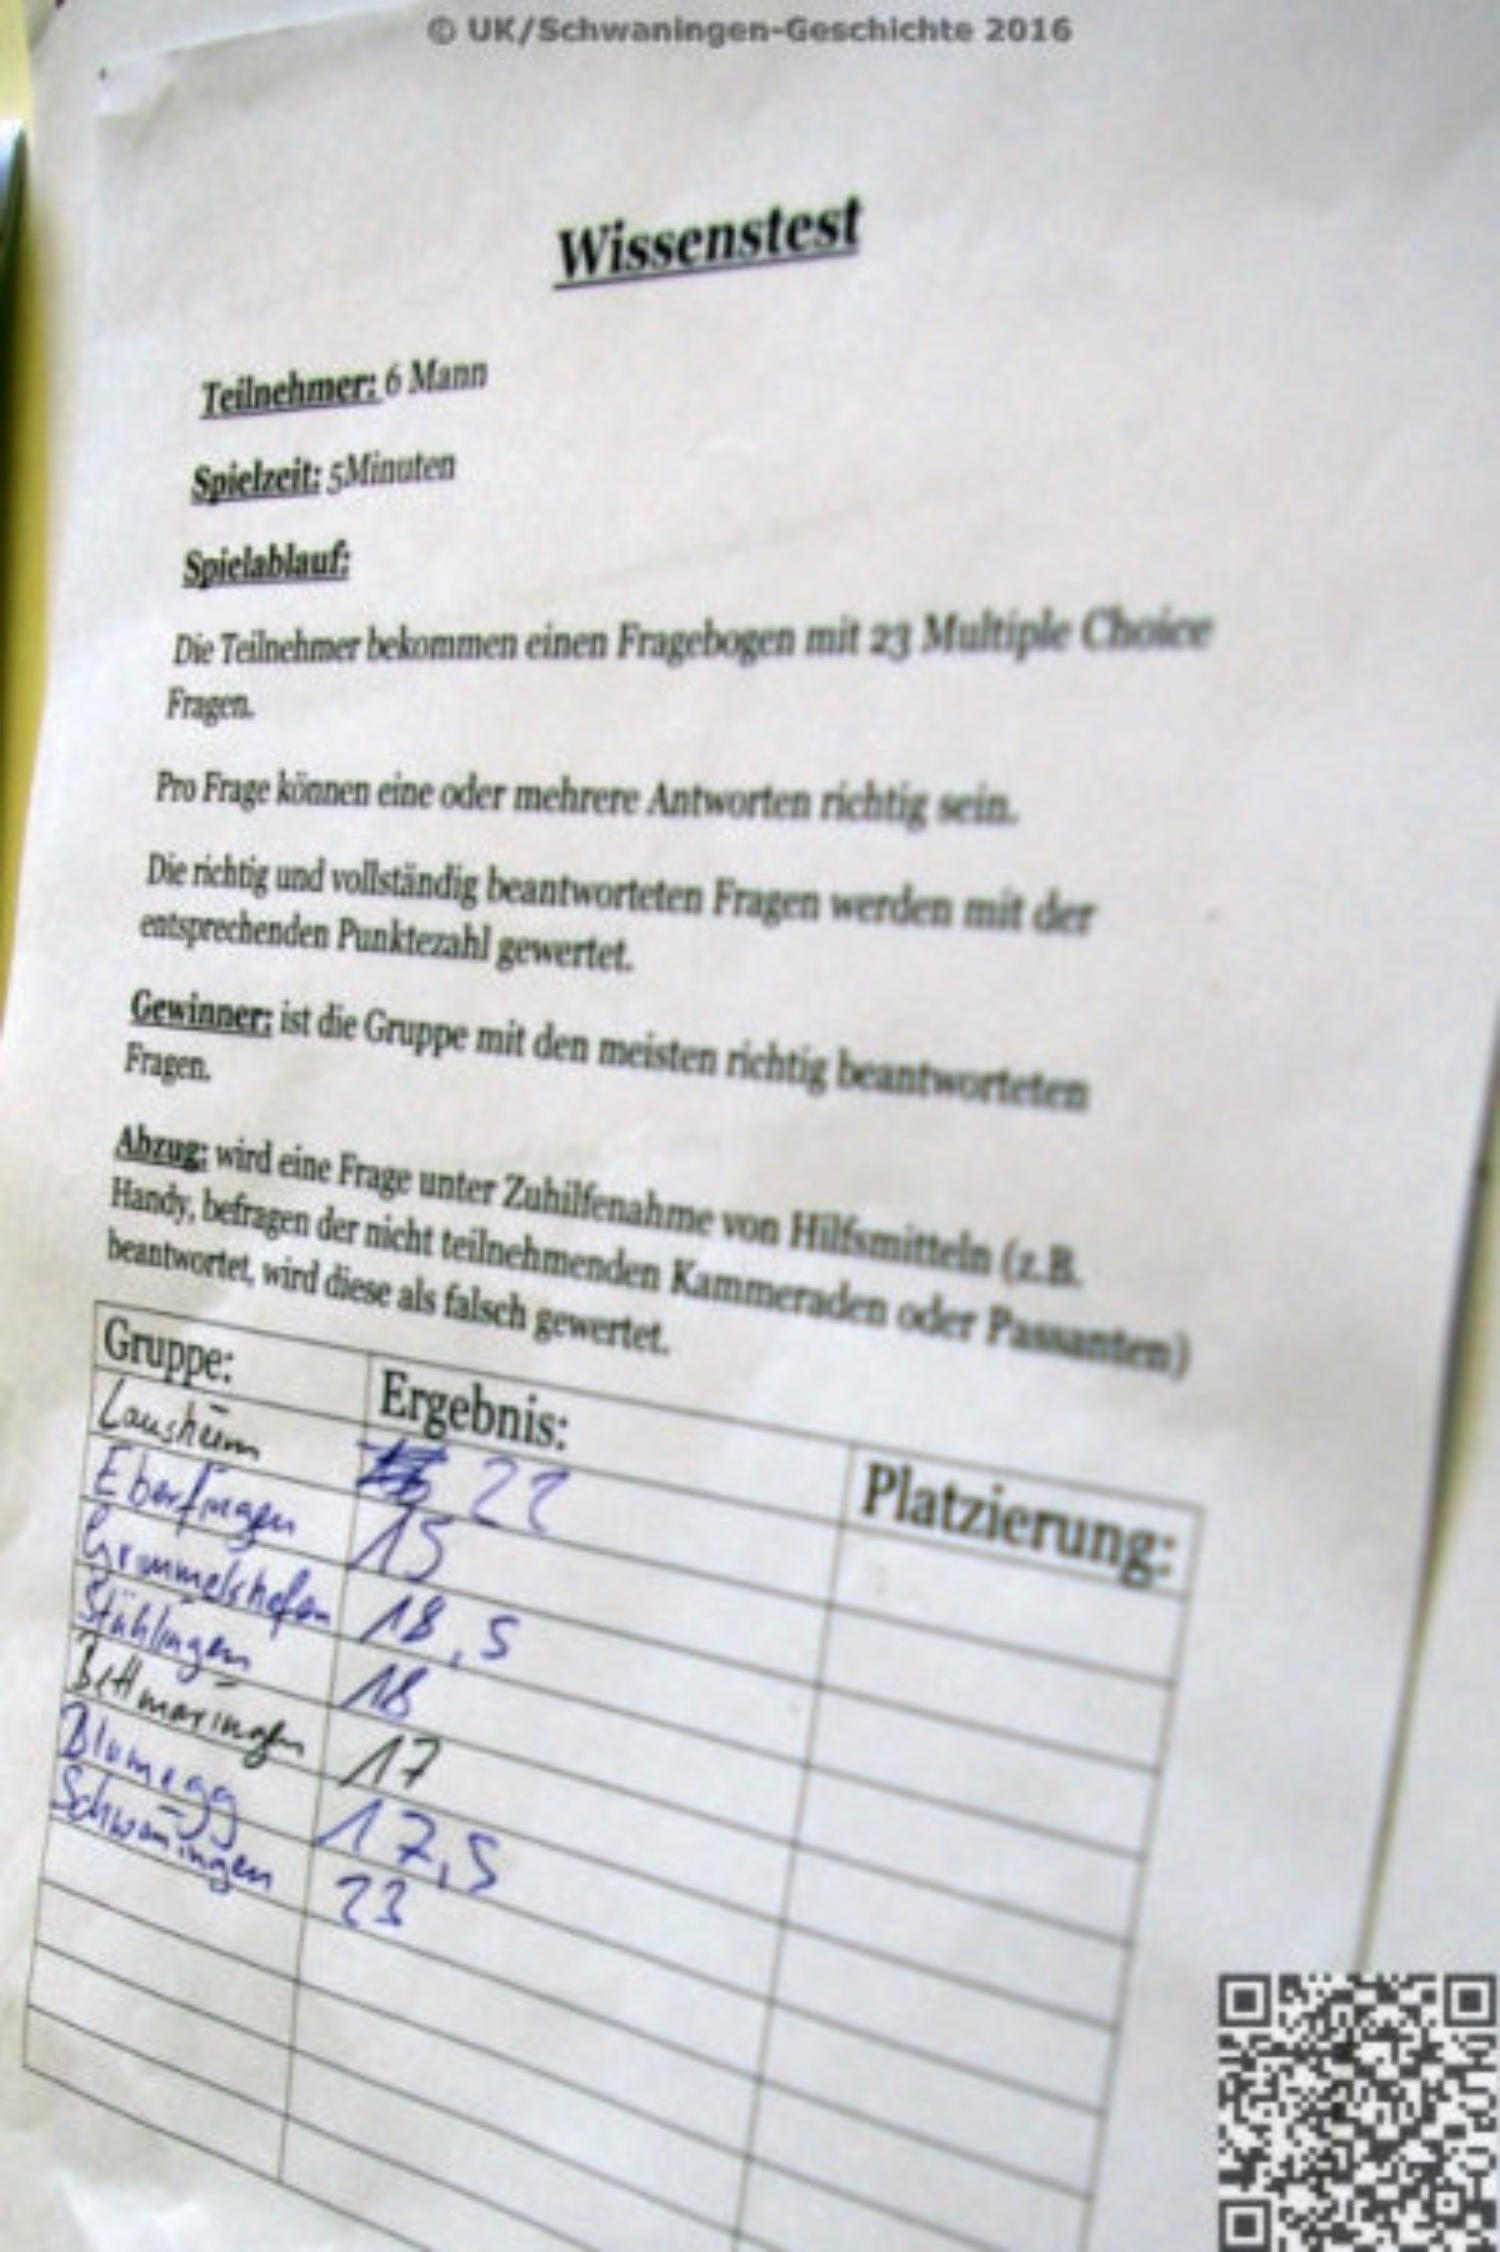 © UK/Schwaningen-Geschichte 2016
Wissenstest
Teilnehmer: 6 Mann
Spielzeit: 5Minuten
Spielablauf:
Die Teilnehmer bekommen einen Fragebogen mit 23 Multiple Choice
Fragen.
Pro Frage können eine oder mehrere Antworten richtig sein.
Die richtig und vollständig beantworteten Fragen werden mit der
entsprechenden Punktezahl gewertet.
Gewinner: ist die Gruppe mit den meisten richtig beantworteten
Fragen.
Abzug: wird eine Frage unter Zuhilfenahme von Hilfsmitteln (z.B.
Handy, befragen der nicht teilnehmenden Kammeraden oder Passanten)
beantwortet, wird diese als falsch gewertet.
Gruppe: Ergebnis: Platzierung:
Lausheim 22
Eberfingen 15
Grimmelshofen 18,5
Stühlingen 18
Bettmaringen 17
Blumegg 17,5
Schwaningen 23